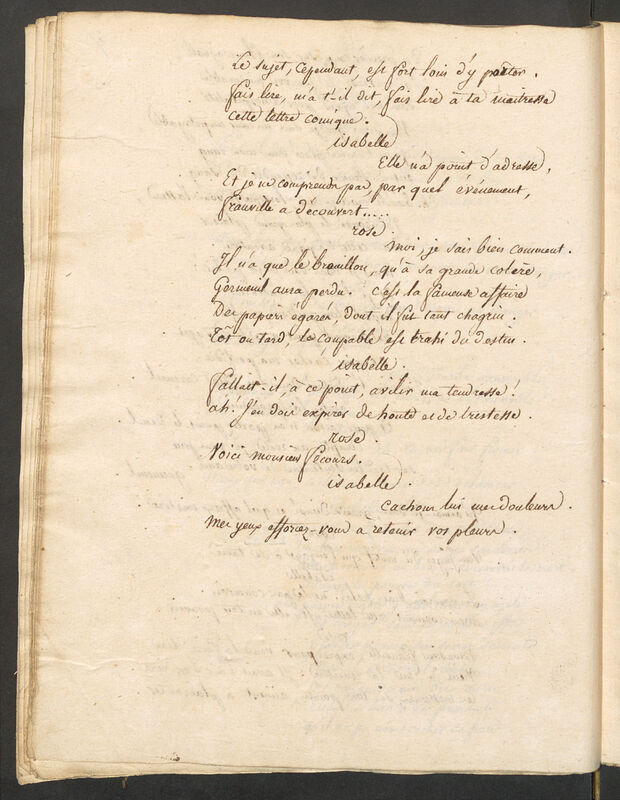 Le sujet, cependant, est fort loin d'y prêter.
fais lire, m'a t-il dit, fais lire à ta maitresse
cette lettre comique.
isabelle
Elle n'a point d'adresse,
Et je ne comprends pas, par quel événement,
frainville a découvert.....
rose.
moi, je sais bien comment.
Il n'a que le brouillon, qu'à sa grande colère,
Germeuil aura perdu. c'est la fameuse affaire
Des papiers égarés, dont il fut tant chagrin.
tôt ou tard, le coupable est trahi du destin.
isabelle.
fallait-il, à ce point, avilir ma tendresse!
ah! j'en dois expirer de honte et de tristesse.
rose.
Voici monsieur fécours.
isabelle.
cachons lui mes douleurs.
mes yeux efforcez-vous à retenir vos pleurs.